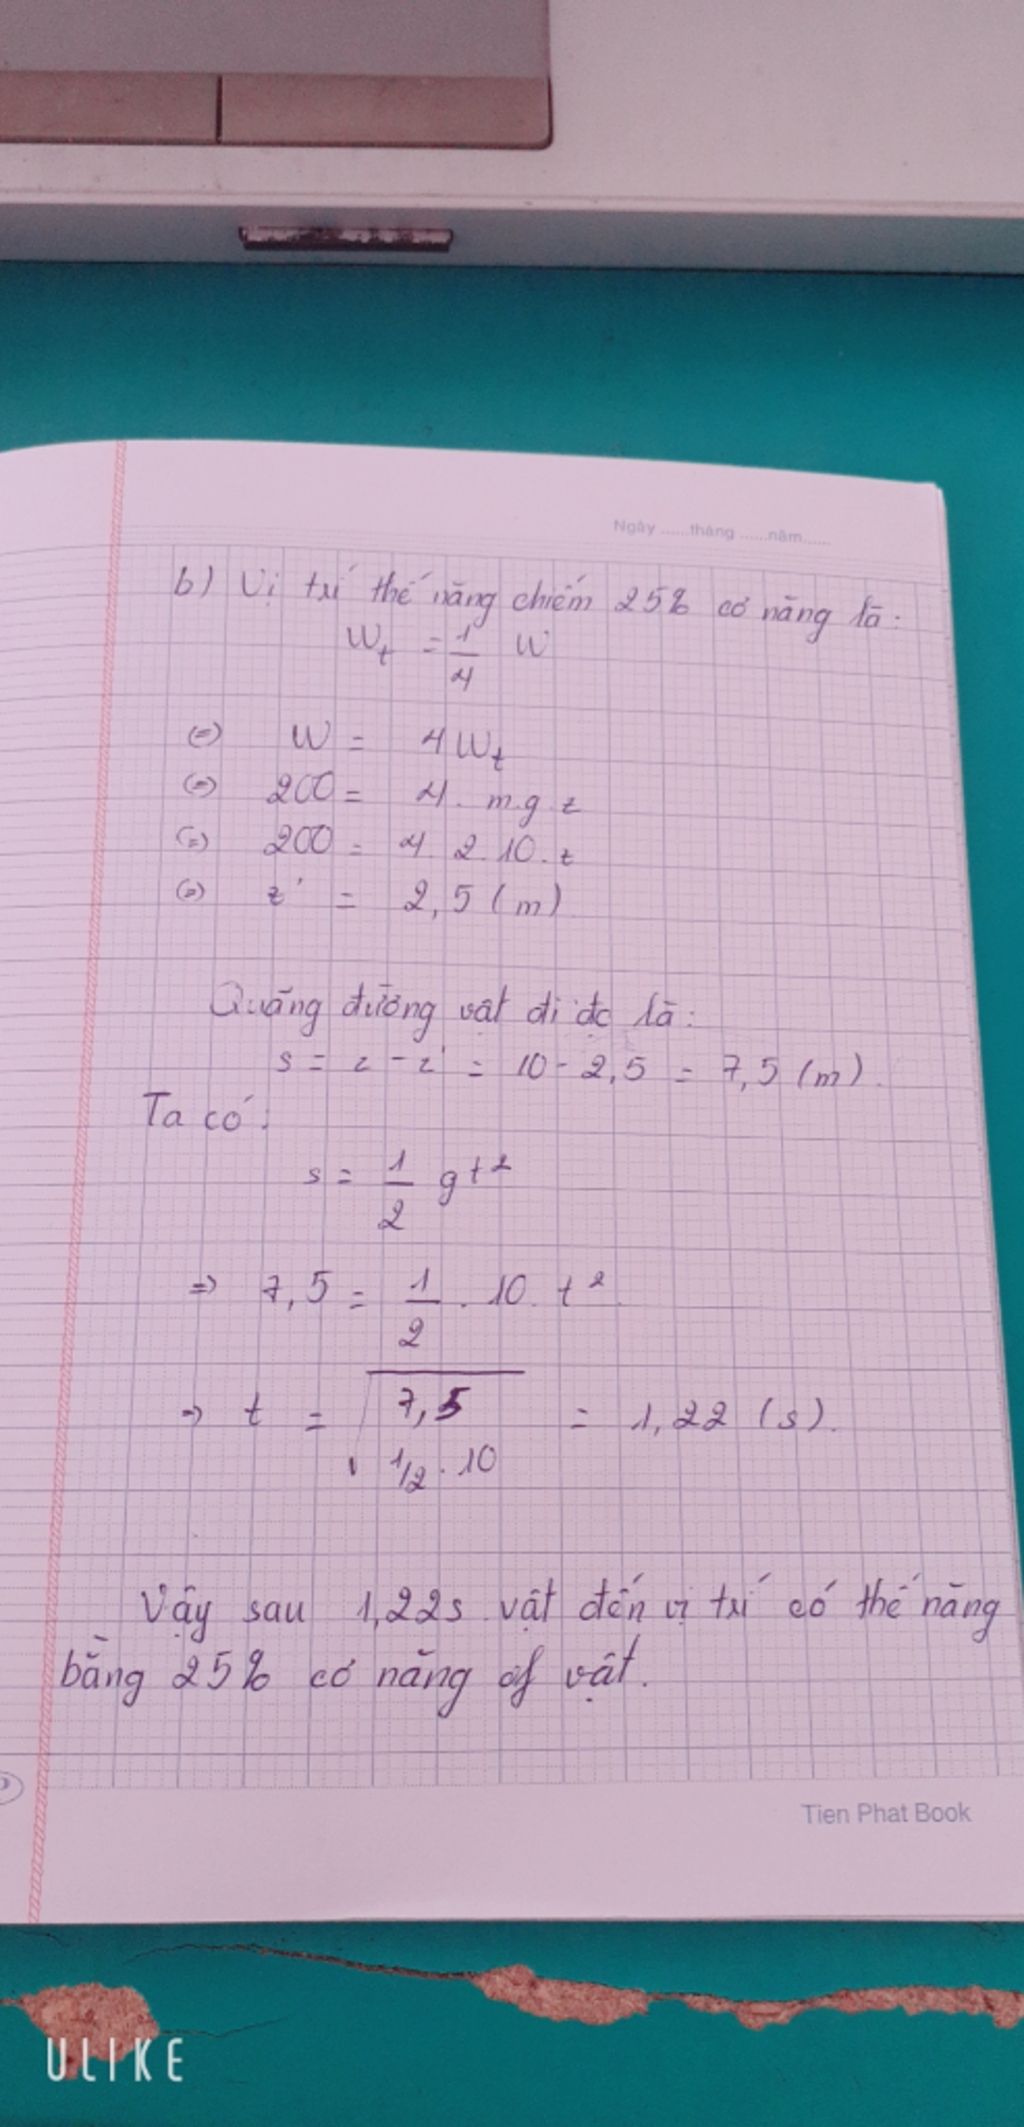 Ngày ......tháng ......năm......
b) Vị trí thế năng chiếm 25% cơ năng là:
Wt = 1/4 W
(=) W = 4Wt
(=) 200 = 4. m.g.z
(=) 200 = 4. 2. 10. z
(=) z' = 2,5 (m)
Quãng đường vật đi đc là:
s = z - z' = 10 - 2,5 = 7,5 (m).
Ta có:
s = 1/2 gt²
=> 7,5 = 1/2 . 10. t²
=> t = √(7,5 / (1/2 . 10)) = 1,22 (s).
Vậy sau 1,22s vật đến vị trí có thế năng
bằng 25% cơ năng of vật.
Tien Phat Book
ULIKE